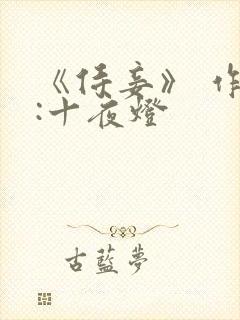 《侍妾》 作
:十夜燈
古藍夢